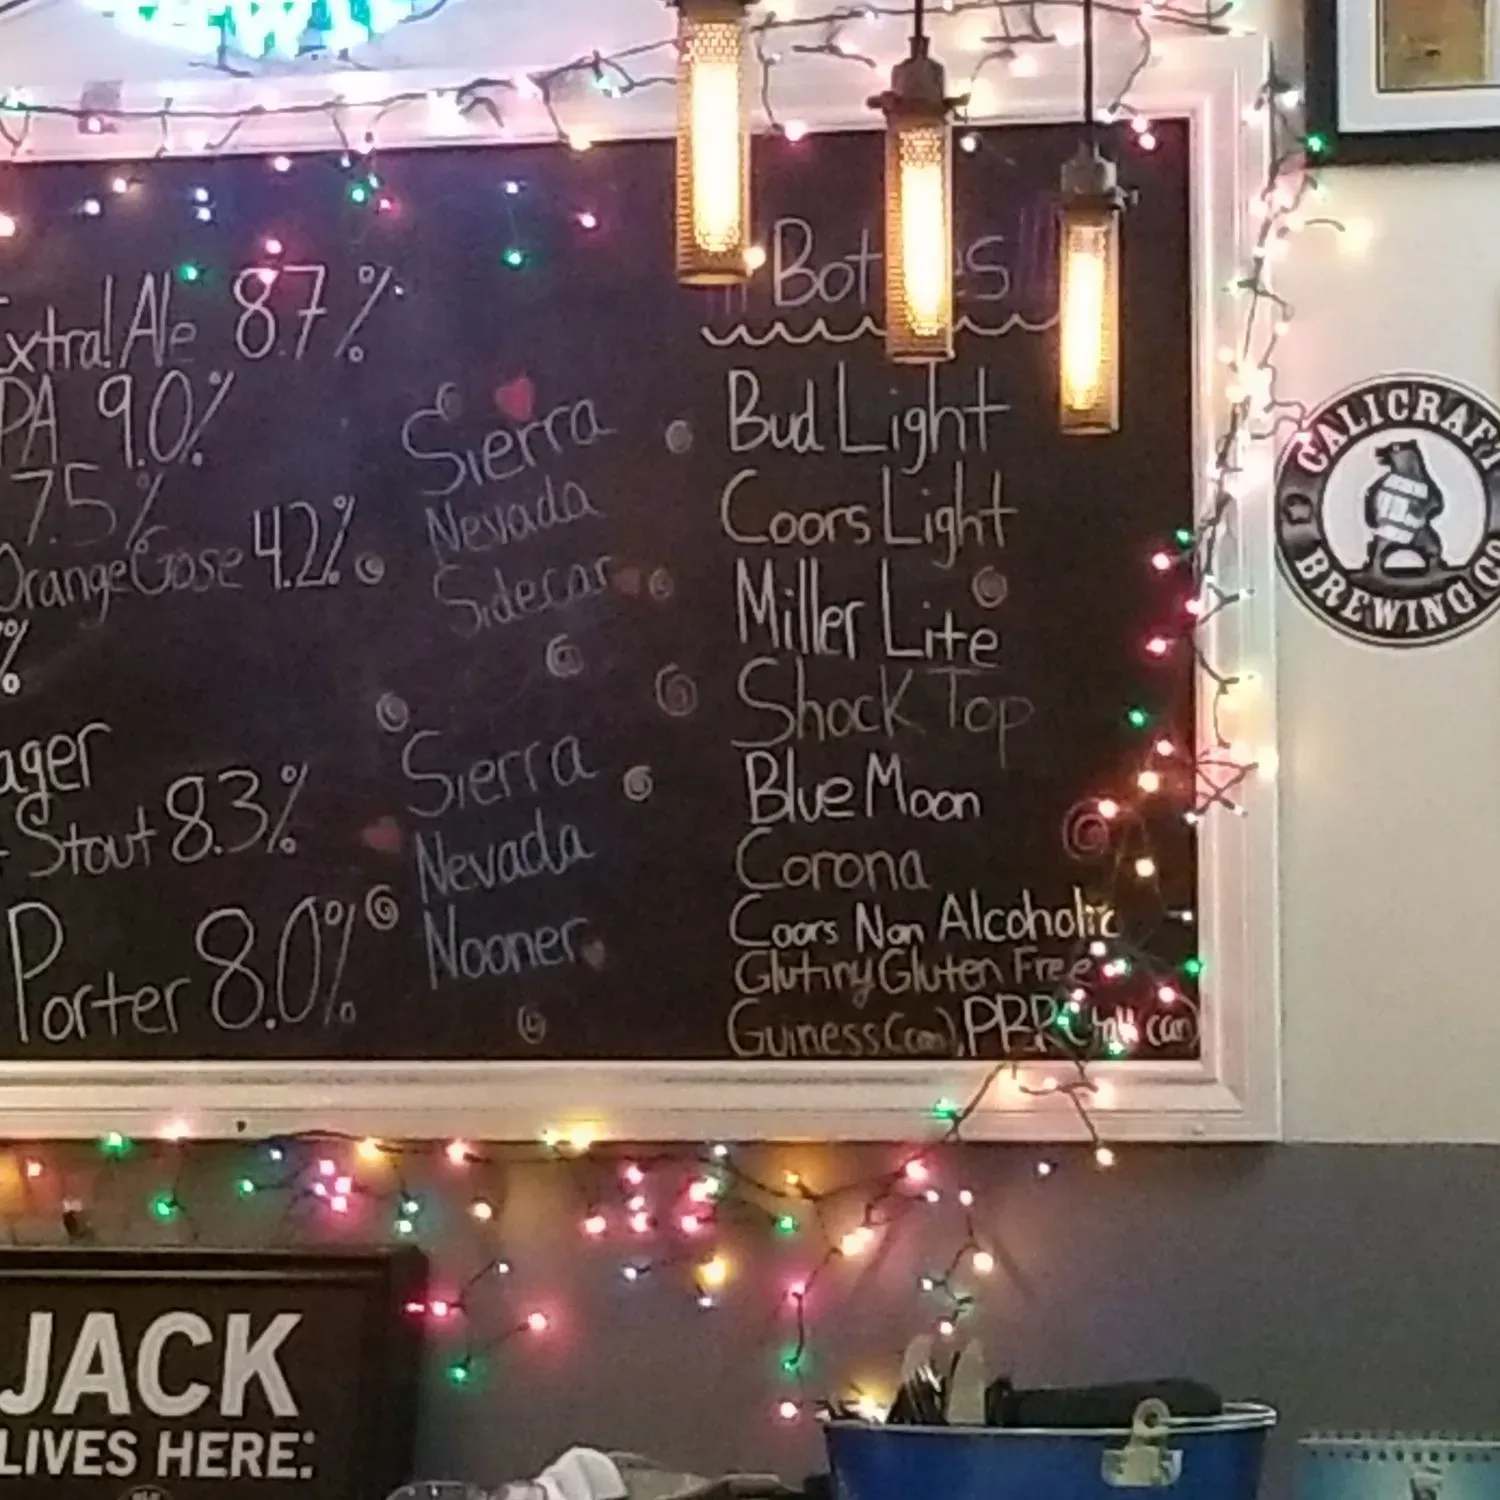 Extra! Ale 8.7%
PA 9.0%
7.5%
Orange Gose 4.2%
%
ager
Stout 8.3%
Porter 8.0%
Sierra
Nevada
Sidecar
Sierra
Nevada
Nooner
Bot es
Bud Light
Coors Light
Miller Lite
Shock Top
Blue Moon
Corona
Coors Non Alcoholic
Glutiny Gluten Free
Guiness (can), PBR (tall can)
CALICRAFT
BREWING CO
JACK
LIVES HERE.